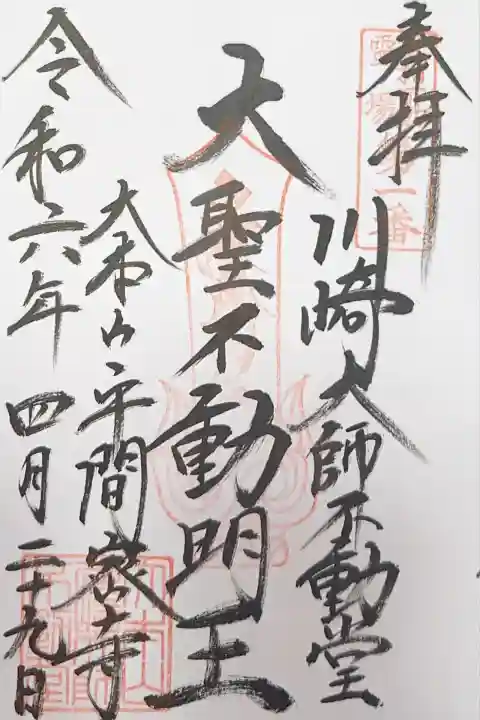 奉拝
霊場第一番
川崎大師不動堂
大聖不動明王
大本山平間寺
令和六年四月二十九日